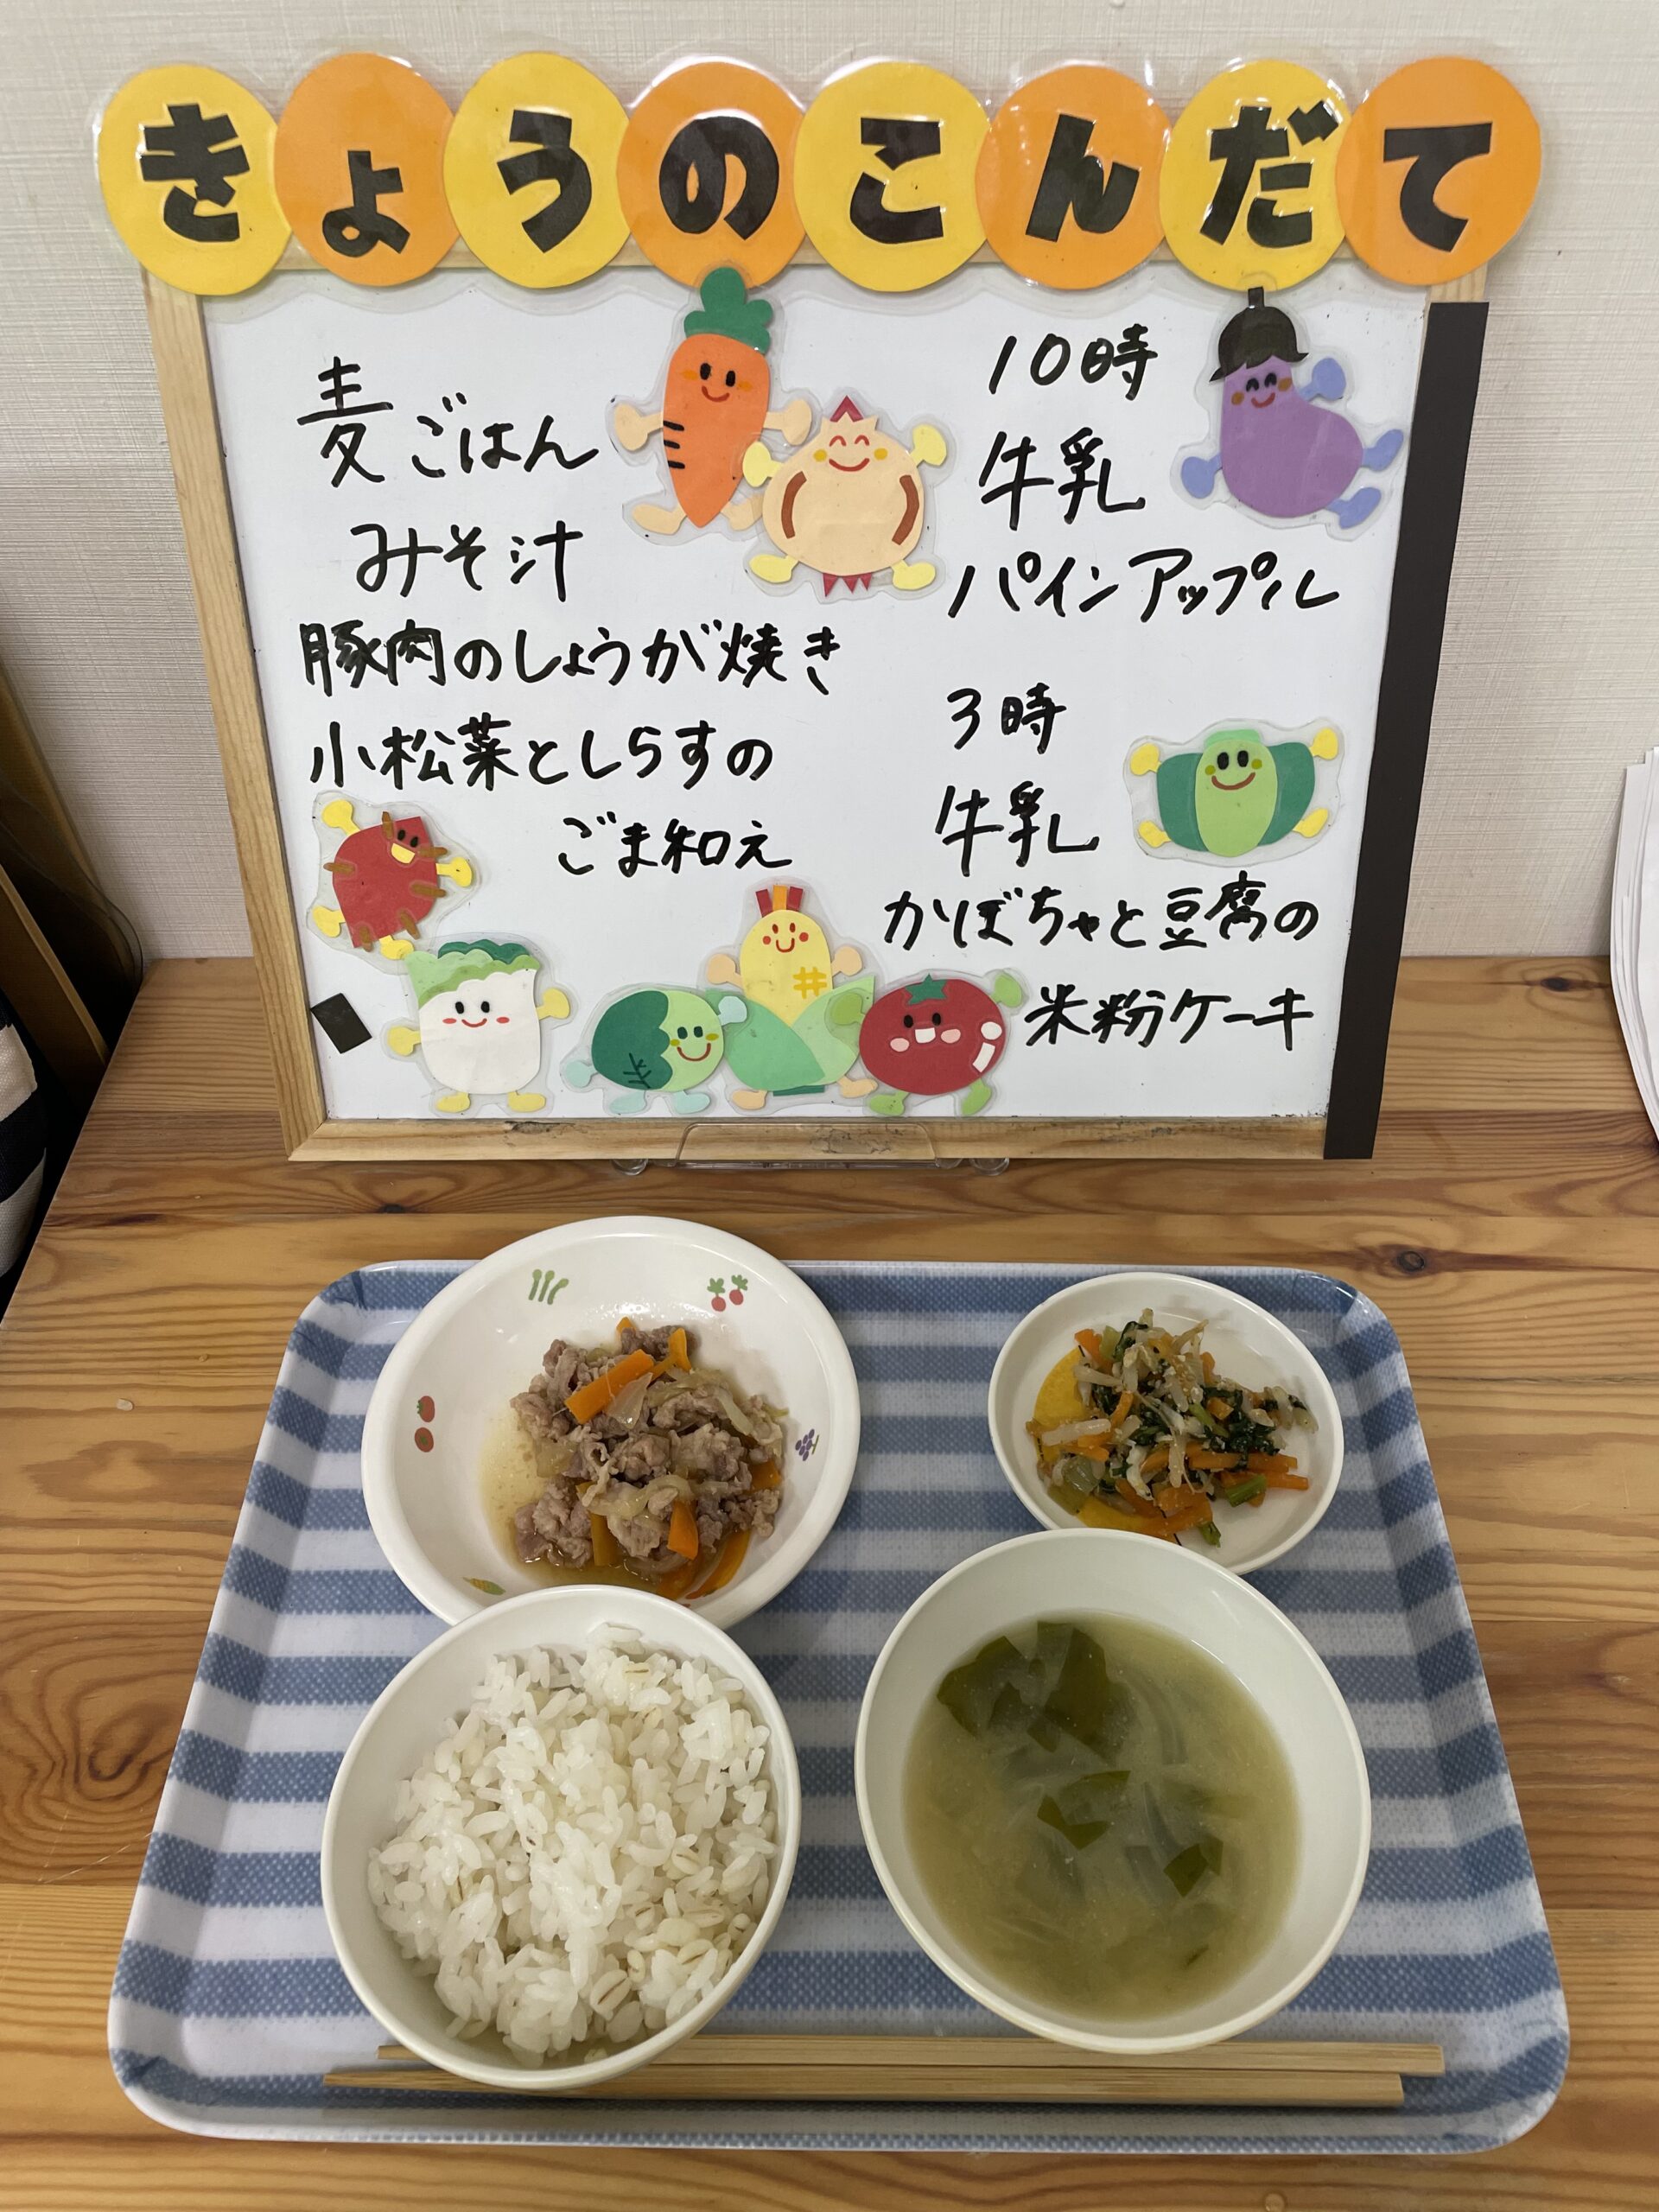 きょうのこんだて
麦ごはん
みそ汁
豚肉のしょうが焼き
小松菜としらすの
ごま和え
10時
牛乳
パインアップル
3時
牛乳
かぼちゃと豆腐の
米粉ケーキ